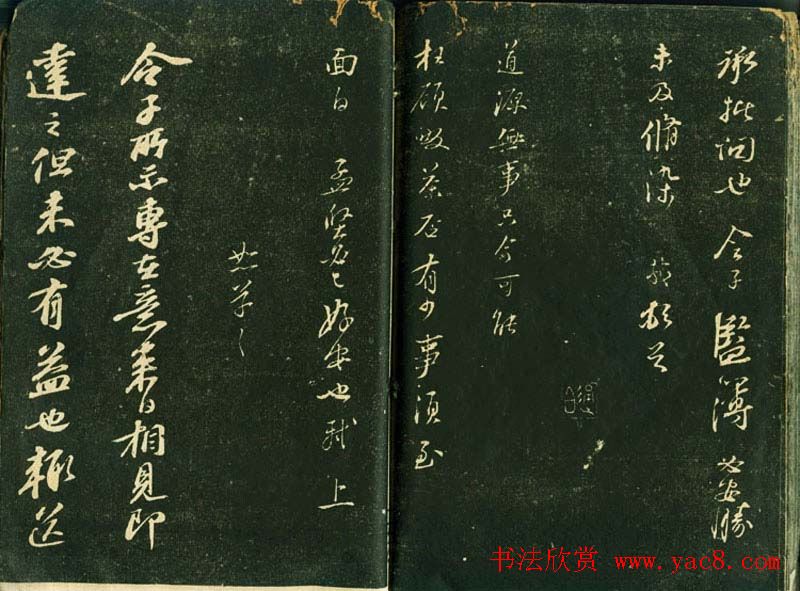 承批問也 令子監簿必安勝
未及脩染 軾頓首
道源無事只今可能
枉顧啜茶否有少事須至
面白 孟堅必已好安也軾上
恕草々
令子所示專在意來日相見即
達之但未必有益也輒送
书法欣赏 www.yac8.com